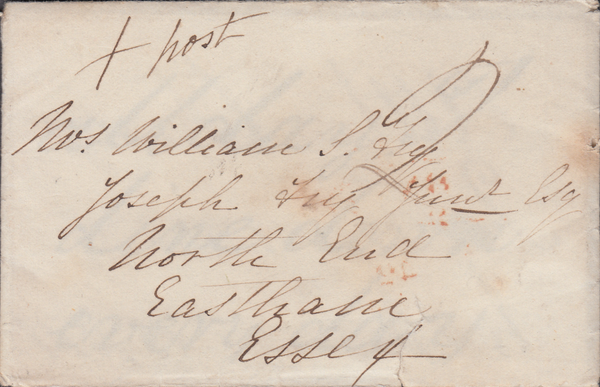 X post
Mrs William S. Fry
Joseph Fry Junr Esq
North End
Eastham
Essex